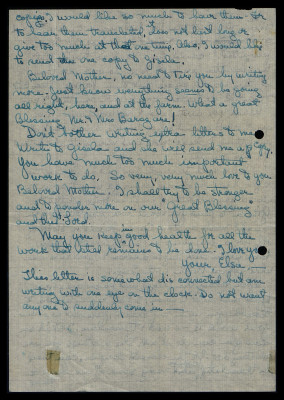 copies, I would like so much to have them. Or
to have them translated, does not last long or
give too much at that one time. Also, I would like
to send the one copy to Gisela.
Beloved Mother, no need to tire you by writing
more. Just know everything seems to be going
all right, here, and at the farm. What a great
Blessing Mr & Mrs are!
Don't bother writing extra letters to me.
Write to Gisela and she will send me a copy.
You have much too much important
work to do. So very, very much love to you
Beloved Mother. I shall try to be stronger
and to ponder more on our "Great Blessing"
and "the Lord.
May you keep in good health for all the
work that still remains to be done. I love you
Your, Elsa
This letter is somewhat disconnected but am
writing with one eye on the clock. Do not want
anyone to suddenly come in